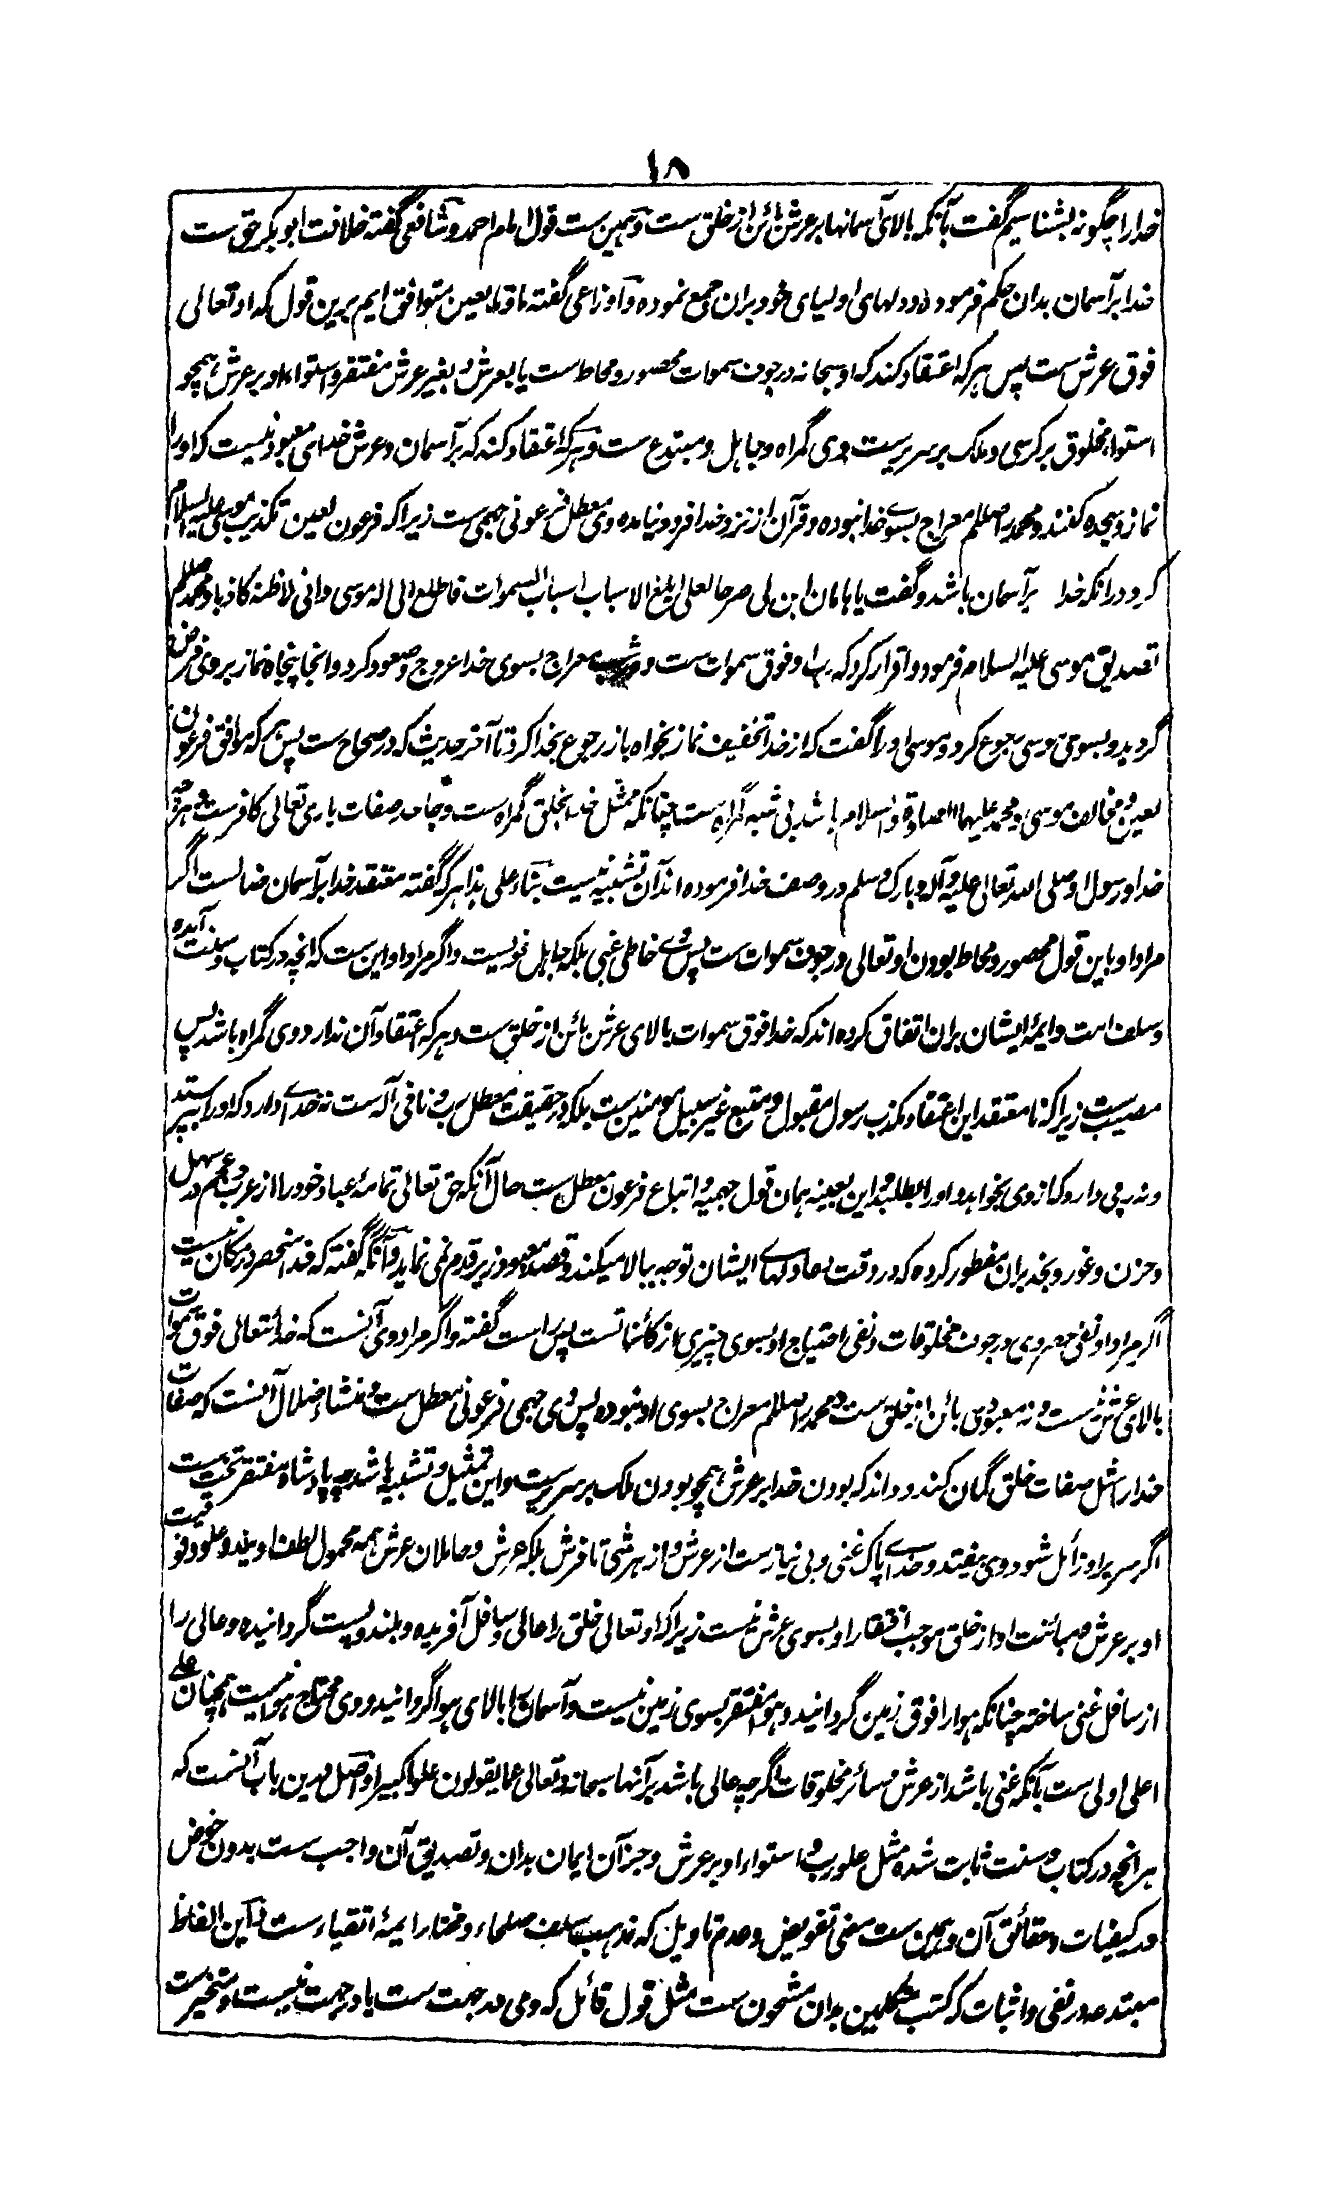 ۱۸
خدا را چگونه بشناسیم گفت بآنکه بالای آسمانها بر عرش بائن از خلق ست و همین ست قول امام احمد و شافعی گفته خلافت ابو بکر حق ست
خدا بر آسمان بدان حکم فرموده و دلهای اولیای خود بران جمع نموده و اوزاعی گفته ما و تابعین متوافق ایم برین قول که او تعالی
فوق عرش ست پس هر که اعتقاد کند که او سبحانه در جوف سموات محصور و محاط ست یا بعرش و بغیر عرش مفتقر و استواء او بر عرش همچو
استواء مخلوق بر کرسی و ملک بر سریرست وی گمراه و جاهل و مبتدع ست و هر که اعتقاد کند که بر آسمان و عرش خدای معبود نیست که او را
نماز و سجده کنند و محمد را صللم معراج بسوے خدا نبوده و قرآن از نزد خدا فرود نیامده وی معطل فرعونی جهمی ست زیرا که فرعون لعین تکذیب موسی علیه السلام
کرد در آنکه خدا بر آسمان باشد و گفت یا هامان ابن لی صرحا لعلی ابلغ الاسباب اسباب السموات فاطلع الی اله موسی وانی لاظنه کاذبا و محمد صللم
تصدیق موسی علیه السلام فرمود و اقرار کرد که رب او فوق سموات ست و شب معراج بسوی خدا عروج و صعود کرد و آنجا پنجاه نماز بر وی فرض
گردید و بسوی موسی رجوع کرد و موسی او را گفت که از خدا تخفیف نماز بخواه باز رجوع بخدا کرد تا آخر حدیث که در صحاح ست پس هر که موافق فرعون
لعین و مخالف موسی و محمد علیهما الصلوة والسلام باشد بی شبه گمراه ست چنانکه ممثل خدا بخلق گمراه ست و جاحد صفات باری تعالی کافر ست و هرچه
خدا و رسول او صلی الله تعالی علیه و آله و بارک و سلم در وصف خدا فرموده اند آن تشبیه نیست بناء علی هذا هر که گفته معتقد خدا بر آسمان ضال ست اگر
مراد او باین قول محصور و محاط بودن او تعالی در جوف سموات ست پس وے خاطی غبی بلکه جاهل غوی ست و اگر مراد او این ست که آنچه در کتاب و سنت آمده
و سلف امت و ایمهٔ ایشان بران اتفاق کرده اند که خدا فوق سموات بالای عرش بائن از خلق ست و هر که اعتقاد آن ندارد وی گمراه باشد پس
مصیب ست زیرا که نا معتقد این اعتقاد مکذب رسول مقبول و متبع غیر سبیل مومنین ست بلکه در حقیقت معطل رب و نافی آله ست نه خداے دارد که او را بپرستد
و نه ربی دارد که از وی بخواهد و او را بطلبد و این بعینه همان قول جهمیه و اتباع فرعون معطل ست حال آنکه حق تعالی تمامهٔ عباد خود را از عرب و عجم در سهل
و حزن و غور و نجد بران مفطور کرده که در وقت دعا دلهاے ایشان توجه ببالا میکند و قصد معبود زیر قدم نمی نماید و آنکه گفته که خدا منحصر در مکان نیست
اگر مراد او نفی حصر وی در جوف مخلوقات و نفی احتیاج او بسوی چیزی از کائنات ست پس راست گفته و اگر مراد وی آنست که خدا تعالی فوق سموات
بالای عرش ست و نه معبودی بائن از خلق ست و محمد را صللم معراج بسوی او نبوده پس وی جهمی فرعونی معطل ست و منشاء ضلال آنست که صفات
خدا را مثل صفات خلق گمان کند و داند که بودن خدا بر عرش همچو بودن ملک بر سریرست و این تمثیل و تشبیه باشد چه پادشاه مفتقر تخت ست
اگر سریر او زائل شود وی بیفتد و خداے پاک غنی و بی نیاز ست از عرش و از هر شی تا فرش بلکه عرش و حاملان عرش همه محمول لطف اویند و علو و فوقیت
او بر عرش و مبائنت او از خلق موجب افتقار او بسوی عرش نیست زیرا که او تعالی خلق را عالی و سافل آفریده و بلند و پست گردانیده و عالی را
از سافل غنی ساخته چنانکه هوا را فوق زمین گردانید و هوا مفتقر بسوی زمین نیست و آسمان را بالای هوا گردانید و وی محتاج هوا نیست همچنان علی
اعلی اولی ست بآنکه غنی باشد از عرش و سائر مخلوقات اگر چه عالی باشد بر آنها سبحانه و تعالی عما یقولون علوا کبیرا و اصل درین باب آنست که
هر آنچه در کتاب و سنت ثابت شده مثل علو رب و استواء او بر عرش و جز آن ایمان بدان و تصدیق آن واجب ست بدون خوض
در کیفیات و حقائق آن و همین ست معنی تفویض و عدم تاویل که مذهب سلف صلحاء و مختار ایمهٔ اتقیاء ست و این الفاظ
مبتدعه در نفی و اثبات که کتب متکلمین بدان مشحون ست مثل قول قائل که وی در جهت ست یا در جهت نیست و متحیز ست